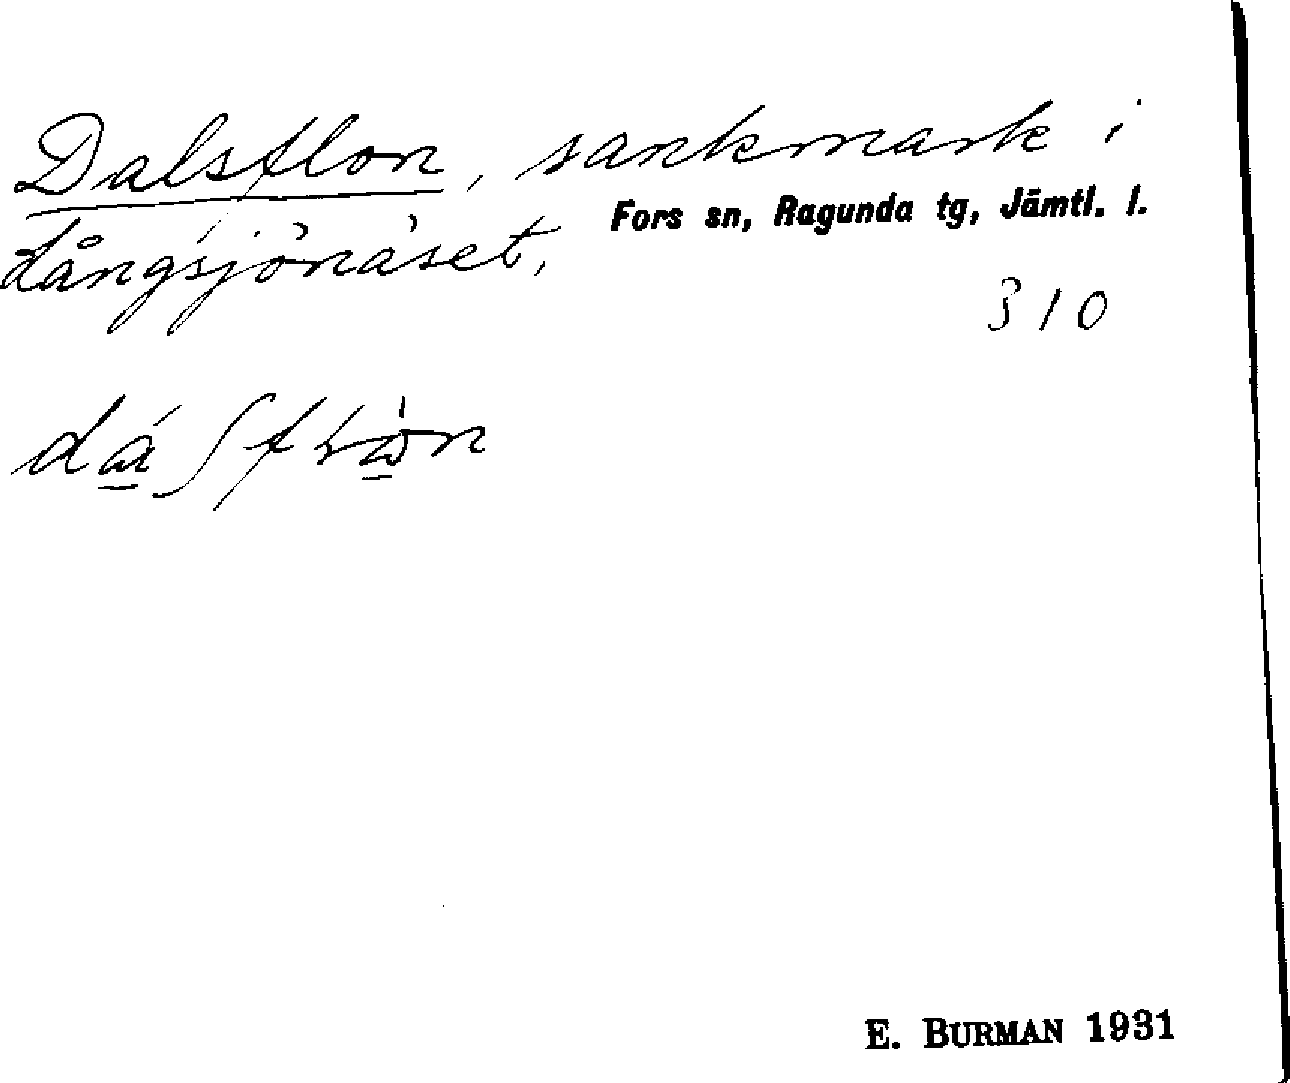 Dalsflon, sankmark i
Långsjönäset.
Fors sn, Ragunda tg, Jämtl. l.
310
E. BURMAN 1931